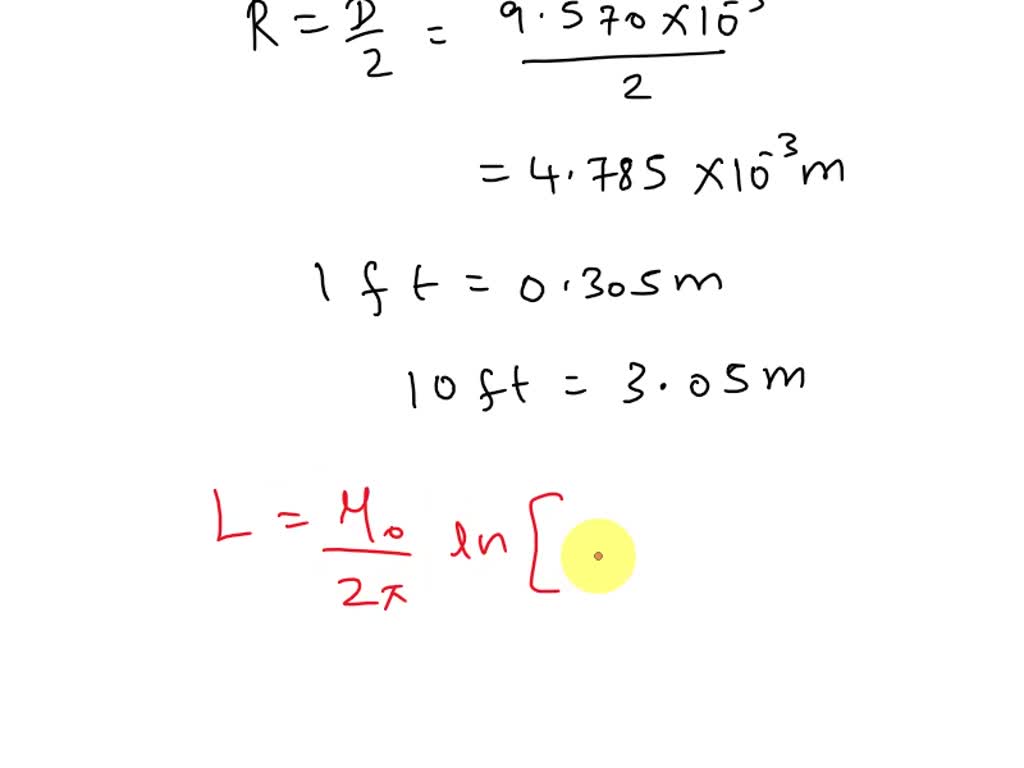 R = D/2 = 9.570 × 10⁻³ / 2
= 4.785 × 10⁻³ m
1 ft = 0.305 m
10 ft = 3.05 m
L = μ₀/2π ln [